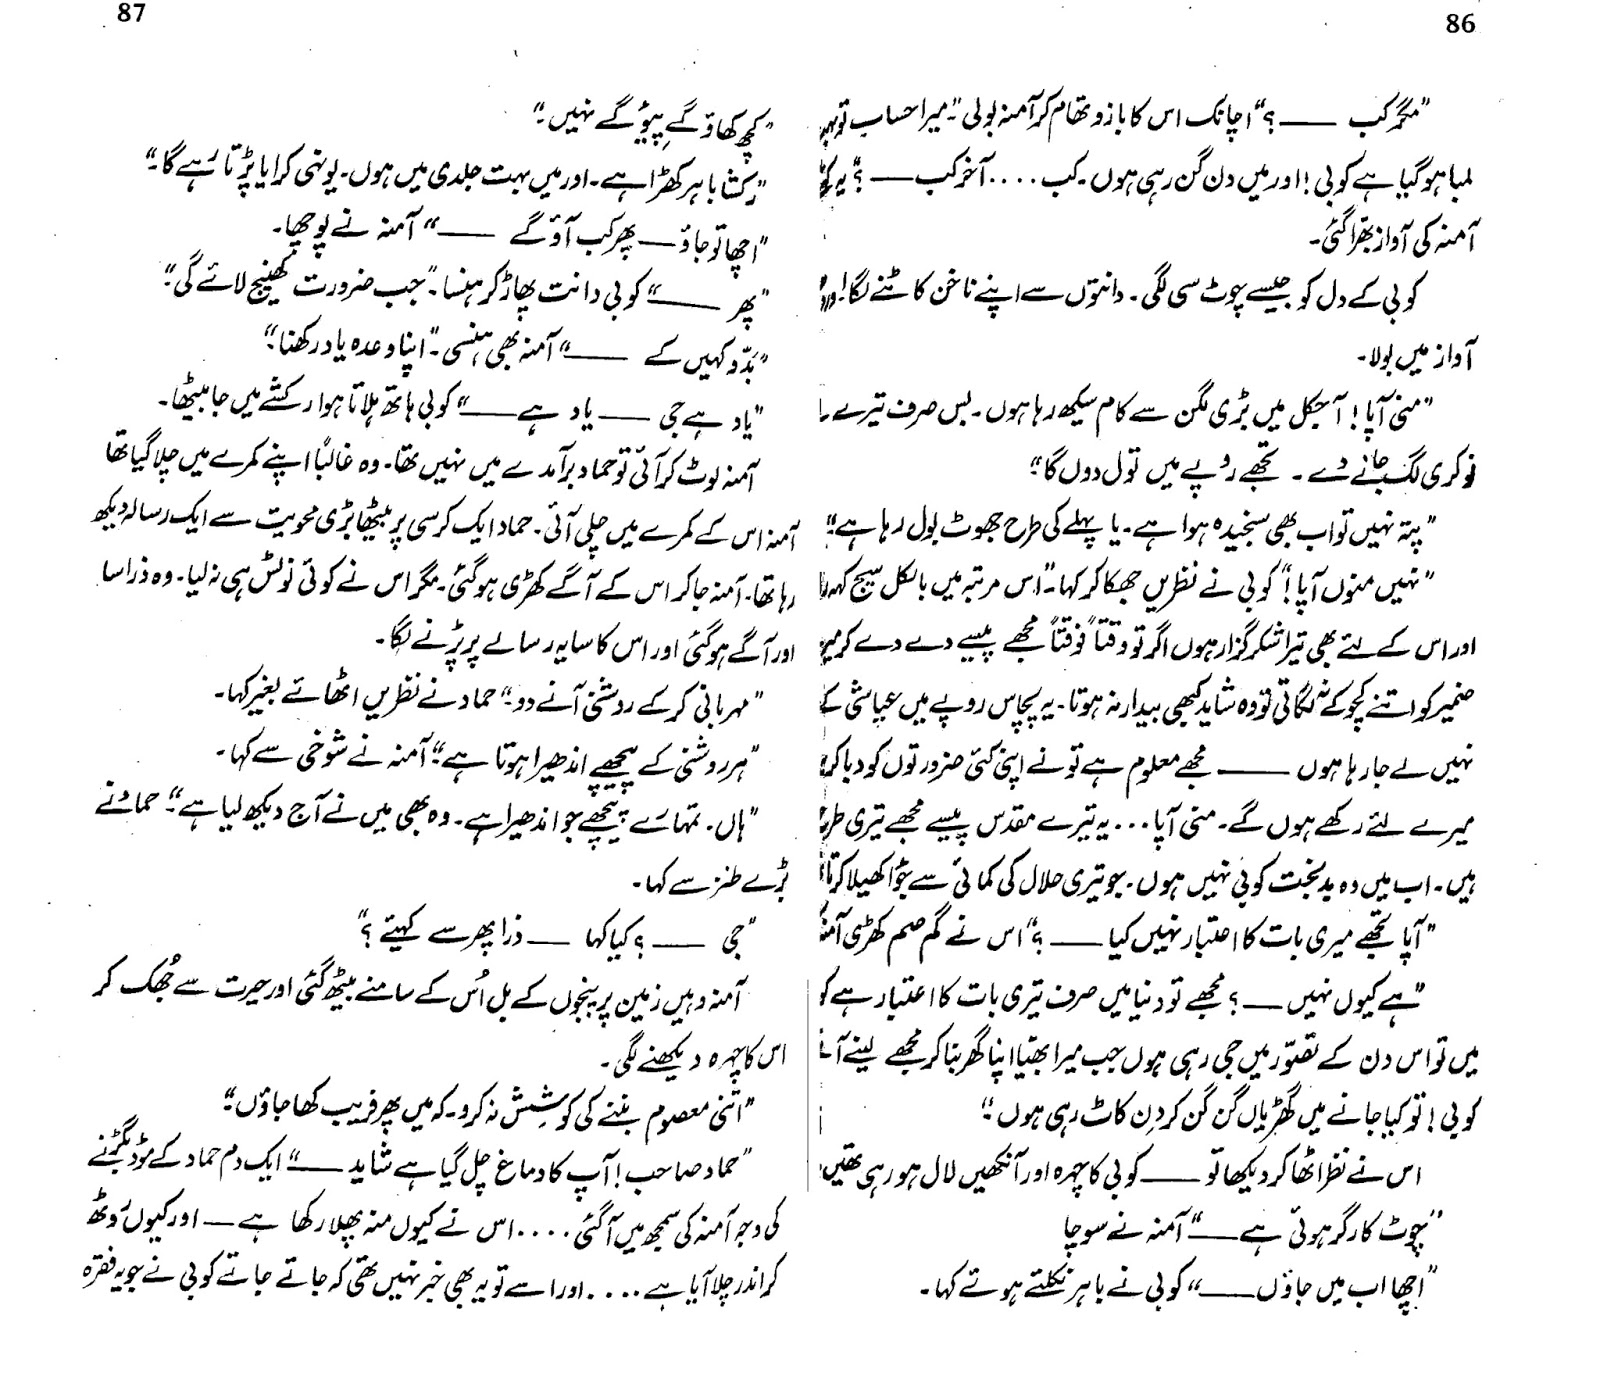 86
"مگر کب ــــــ؟" اچانک اس کا بازو تھام کر آمنہ بولی "میرا حساب تو
لمبا ہو گیا ہے کوبی! اور میں دن گن رہی ہوں۔ کب .... آخر کب ــــــ؟ یہ
آمنہ کی آواز بھرا گئی۔
کوبی کے دل کو جیسے چوٹ سی لگی۔ دانتوں سے اپنے ناخن کاٹنے لگا!
آواز میں بولا۔
"منی آپا! آجکل میں بڑی لگن سے کام سیکھ رہا ہوں۔ بس صرف تیرے
نوکری لگ جانے دے۔ تجھے روپے میں تول دوں گا"
"پتہ نہیں تو اب بھی سنجیدہ ہوا ہے۔ یا پہلے کی طرح جھوٹ بول رہا ہے"
"نہیں منوں آپا!" کوبی نے نظریں جھکا کر کہا۔ "اس مرتبہ میں بالکل سچ کہہ
اور اس کے لئے بھی تیرا شکر گزار ہوں اگر تو وقتاً فوقتاً مجھے پیسے دے دے کر
ضمیر کو اتنے کچوکے نہ لگاتی تو وہ شاید کبھی بیدار نہ ہوتا۔ یہ پچاس روپے میں عیاشی کے
نہیں لے جا رہا ہوں ــــــ مجھے معلوم ہے تو نے اپنی کئی ضرورتوں کو دبا کر
میرے لئے رکھے ہوں گے۔ منی آپا... یہ تیرے مقدس پیسے مجھے تیری طرح
ہیں۔ اب میں وہ بدبخت کوبی نہیں ہوں۔ جو تیری حلال کی کمائی سے جوٗا کھیلا کرتا
"آپا تجھے میری بات کا اعتبار نہیں کیا ــــــ؟" اس نے گم صم کھڑی آمنہ
"ہے کیوں نہیں ــــــ؟ مجھے تو دنیا میں صرف تیری بات کا اعتبار ہے
میں تو اس دن کے تصوّر میں جی رہی ہوں جب میرا بھیّا اپنا گھر بنا کر مجھے لینے
کوبی! تو کیا جانے میں گھڑیاں گن گن کر دن کاٹ رہی ہوں"
اس نے نظر اٹھا کر دیکھا تو ــــــ کوبی کا چہرہ اور آنکھیں لال ہو رہی تھیں
"چوٹ کارگر ہوئی ہے ــــــ" آمنہ نے سوچا
"اچھا اب میں جاؤں ــــــ" کوبی نے باہر نکلتے ہوئے کہا۔
87
"کچھ کھاؤ گے پیئو گے نہیں۔"
"رکشا باہر کھڑا ہے۔ اور میں بہت جلدی میں ہوں۔ یونہی کرایا پڑتا رہے گا۔"
"اچھا تو جاؤ ــــــ پھر کب آؤ گے ــــــ" آمنہ نے پوچھا۔
"پھر ــــــ" کوبی دانت پھاڑ کر ہنسا۔ "جب ضرورت کھینچ لائے گی۔"
"بدّو کہیں کے ــــــ" آمنہ بھی ہنسی۔ "اپنا وعدہ یاد رکھنا۔"
"یاد ہے جی ــــــ یاد ہے ــــــ" کوبی ہاتھ ہلاتا ہوا رکشے میں جا بیٹھا۔
آمنہ لوٹ کر آئی تو حماد برآمدے میں نہیں تھا۔ وہ غالباً اپنے کمرے میں چلا گیا تھا
آمنہ اس کے کمرے میں چلی آئی۔ حماد ایک کرسی پر بیٹھا بڑی محویت سے ایک رسالہ دیکھ
رہا تھا۔ آمنہ جا کر اس کے آگے کھڑی ہو گئی۔ مگر اس نے کوئی نوٹس ہی نہ لیا۔ وہ ذرا سا
اور آگے ہو گئی اور اس کا سایہ رسالے پر پڑنے لگا۔
"مہربانی کر کے روشنی آنے دو۔" حماد نے نظریں اٹھائے بغیر کہا۔
"ہر روشنی کے پیچھے اندھیرا ہوتا ہے۔" آمنہ نے شوخی سے کہا۔
"ہاں۔ تمہارے پیچھے جو اندھیرا ہے۔ وہ بھی میں نے آج دیکھ لیا ہے۔" حماد نے
بڑے طنز سے کہا۔
"جی ــــــ؟ کیا کہا ــــــ ذرا پھر سے کہیئے؟"
آمنہ وہیں زمین پر پنجوں کے بل اُس کے سامنے بیٹھ گئی اور حیرت سے جُھک کر
اس کا چہرہ دیکھنے لگی۔
"اتنی معصوم بننے کی کوشِش نہ کرو۔ کہ میں پھر فریب کھا جاؤں۔"
"حماد صاحب! آپ کا دماغ چل گیا ہے شاید ــــــ" ایک دم حماد کے موڈ بگڑنے
کی وجہ آمنہ کی سمجھ میں آ گئی .... اس نے کیوں منہ پھلا رکھا ہے ــــــ اور کیوں رُوٹھ
کر اندر چلا آیا ہے .... اور اسے تو یہ بھی خبر نہیں تھی کہ جاتے جاتے کوبی نے جو یہ فقرہ